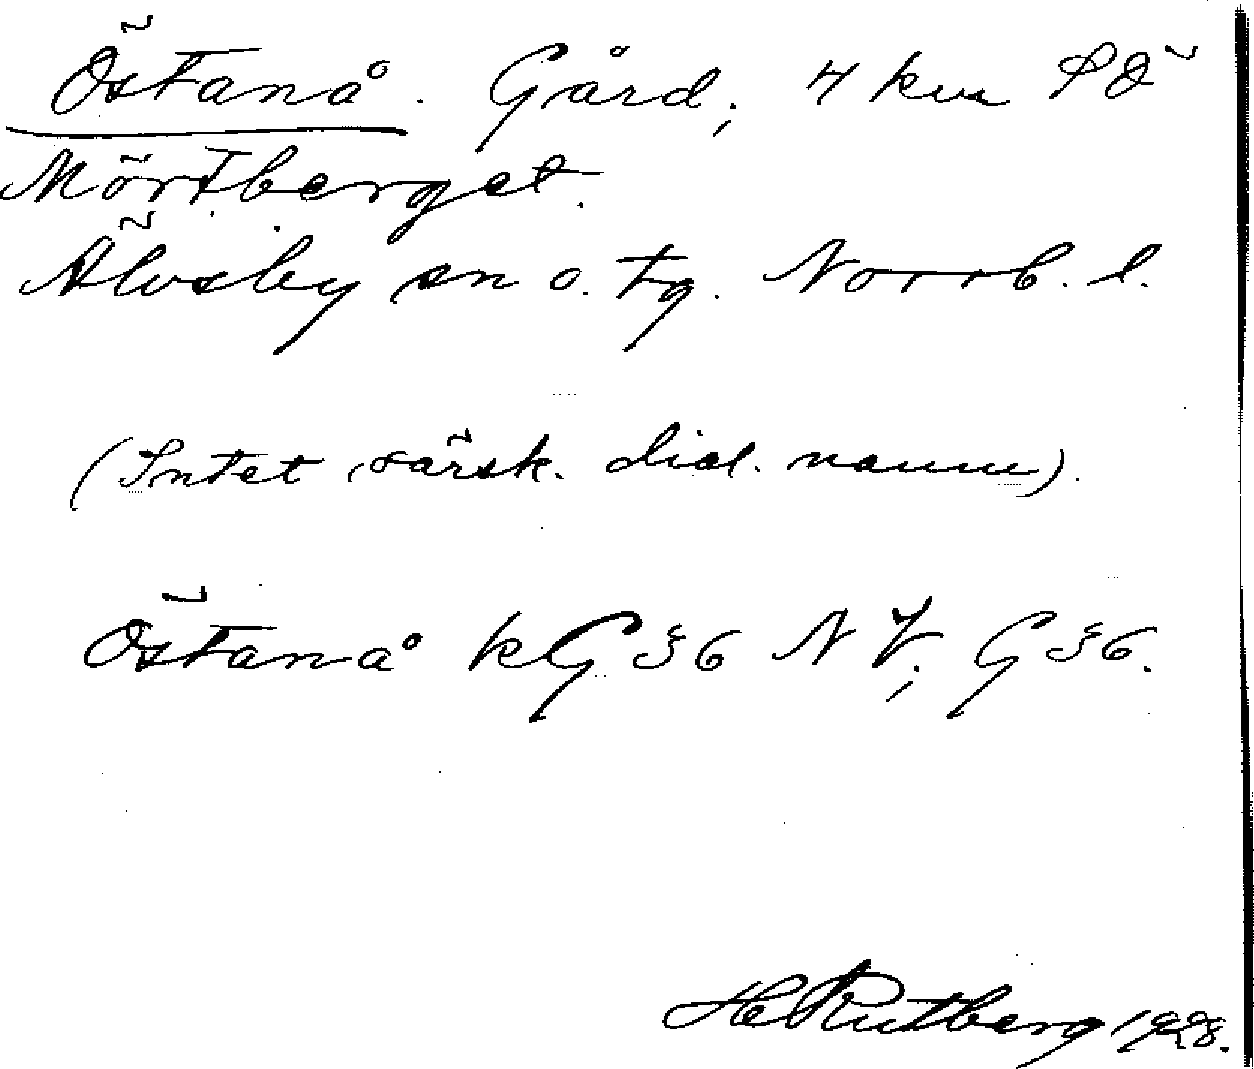 Östanå. Gård; 4 km SÖ
Mörtberget.
Älvsby sn o. tg. Norrb. l.
(Intet särsk. dial. namn).
Östanå kG 36 NV; G 36.
H Rutberg 1928.